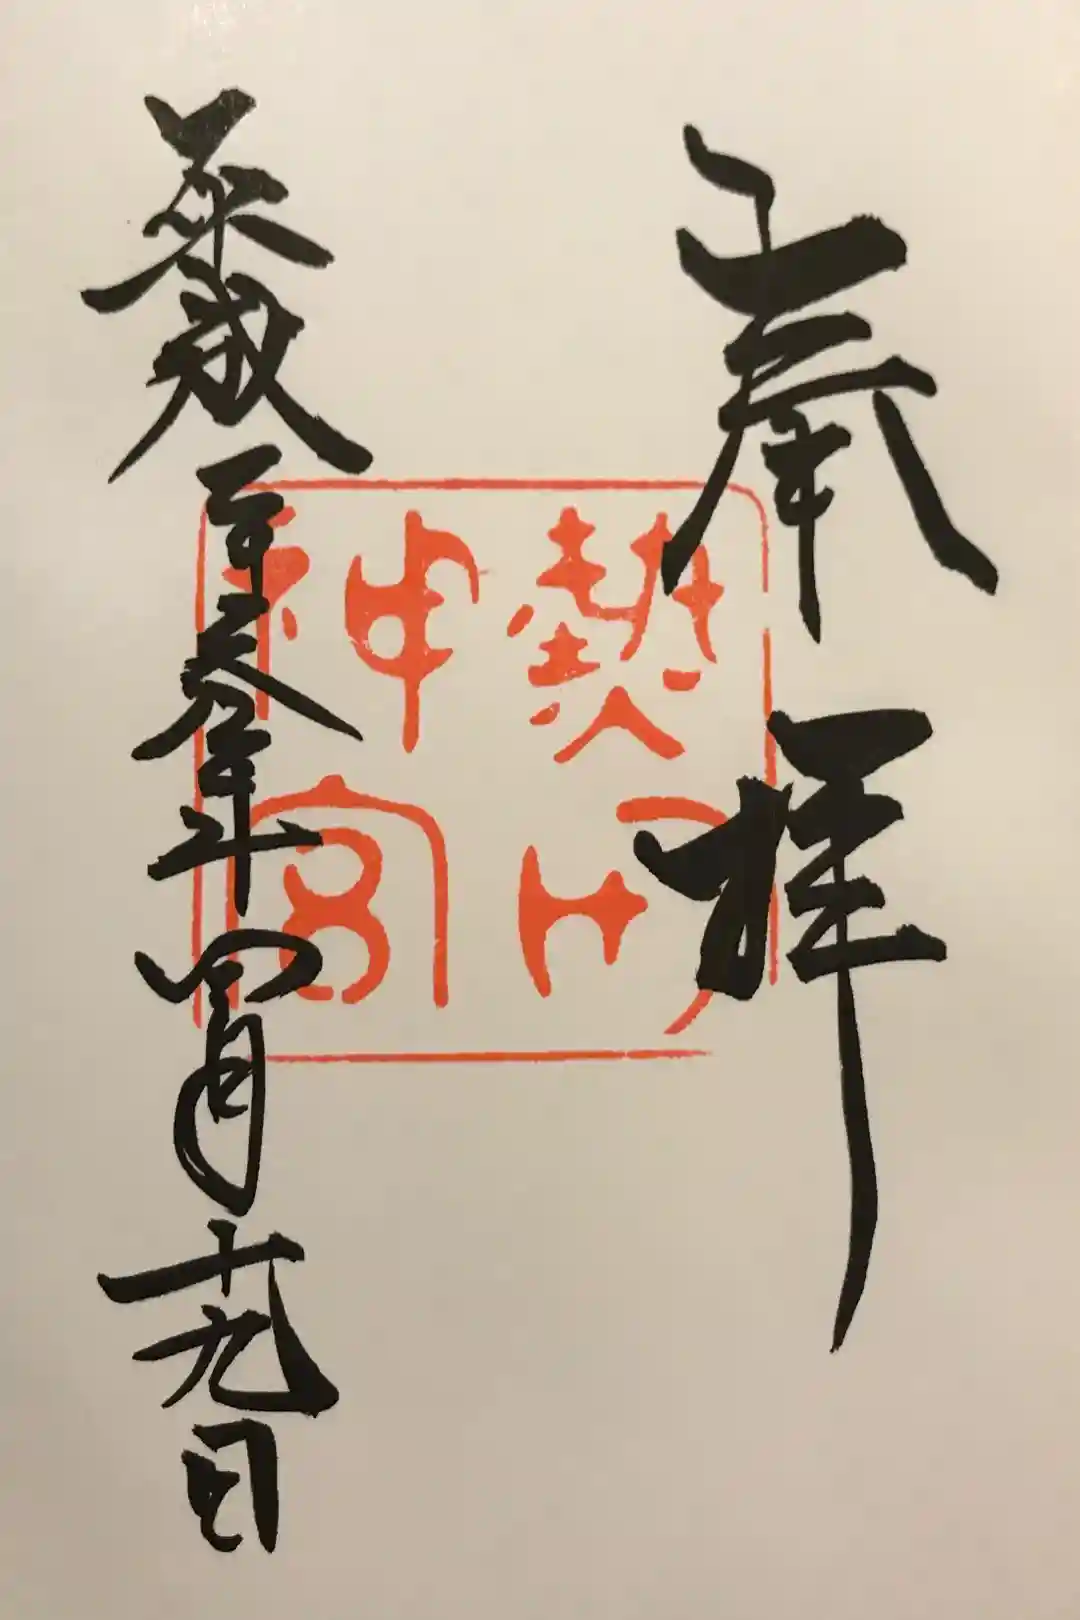 奉拝
熱田神宮
平成二十参年四月十九日